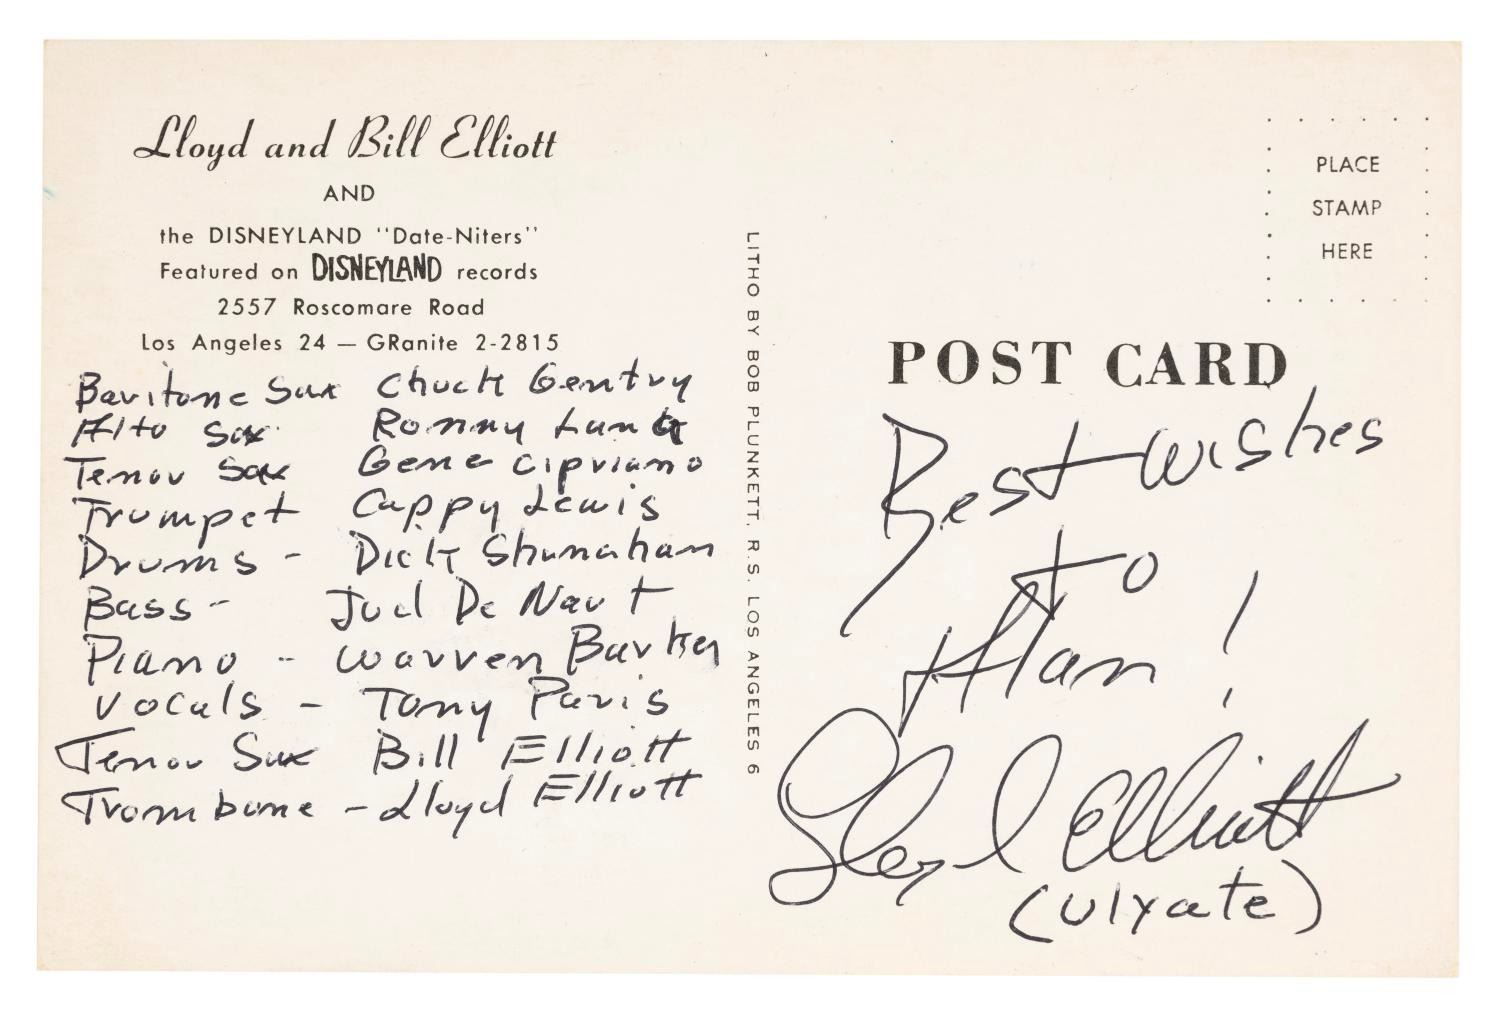 Lloyd and Bill Elliott
AND
the DISNEYLAND "Date-Niters"
Featured on DISNEYLAND records
2557 Roscomare Road
Los Angeles 24 — GRanite 2-2815
Baritone Sax Chuck Gentry
Alto Sax Ronny Lang
Tenor Sax Gene Cipriano
Trumpet Cappy Lewis
Drums - Dick Shanahan
Bass - Jud De Naut
Piano - Warren Barker
Vocals - Tony Paris
Tenor Sax Bill Elliott
Trombone - Lloyd Elliott
LITHO BY BOB PLUNKETT, R.S. LOS ANGELES 6
PLACE
STAMP
HERE
POST CARD
Best Wishes
to
Alan!
Lloyd Elliott
(Ulyate)